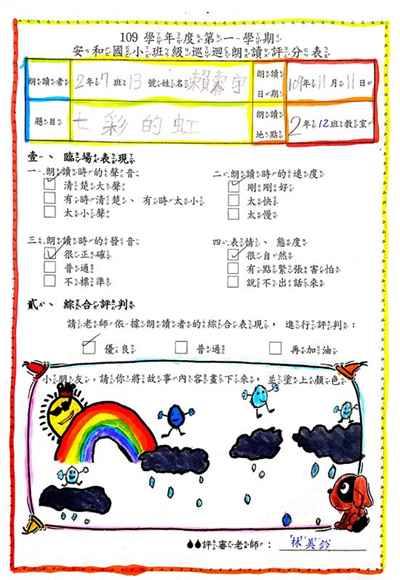 109 學年度第一學期
安和國小班級巡迴朗讀評分表
朗讀者 2年7班13號姓名 賴 朗讀日期 109年11月11日
題目 七彩的虹 朗讀地點 2年12班教室
壹、臨場表現
一、朗讀時的聲音 二、朗讀時的速度
清楚大聲 剛剛好
有時清楚、有時太小 太快
太小聲 太慢
三、朗讀時的發音 四、表情、態度
很正確 很自然
普通 有點緊張害怕
不標準 說不出話來
貳、綜合評判
請老師依據朗讀者的綜合表現,進行評判:
優良 普通 再加油
小朋友,請你將故事內容畫下來,並塗上顏色
評審老師: 林美